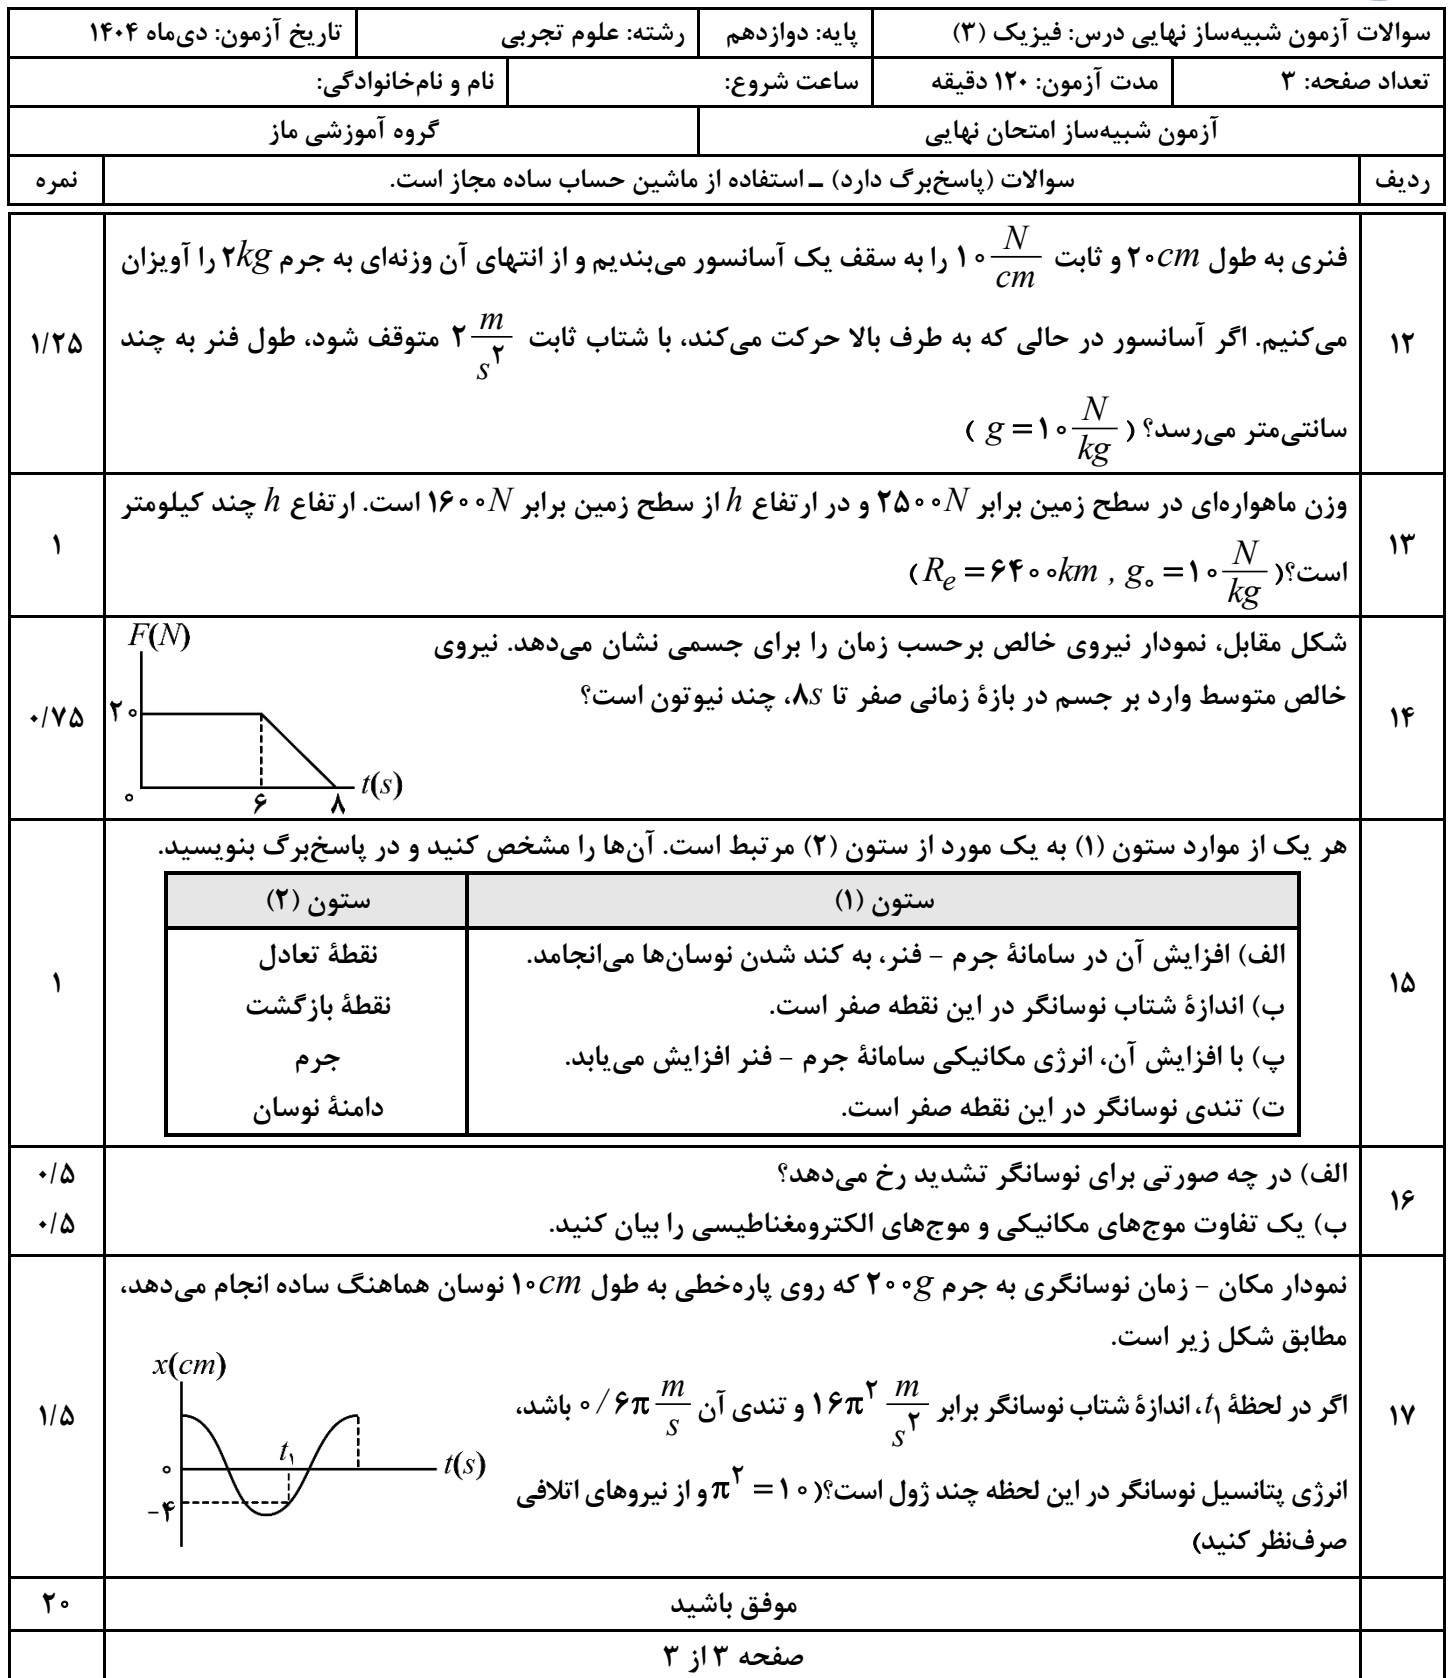 سوالات آزمون شبیه‌ساز نهایی درس: فیزیک (۳) پایه: دوازدهم رشته: علوم تجربی تاریخ آزمون: دی‌ماه ۱۴۰۴
تعداد صفحه: ۳ مدت آزمون: ۱۲۰ دقیقه ساعت شروع: نام و نام‌خانوادگی:
آزمون شبیه‌ساز امتحان نهایی گروه آموزشی ماز
ردیف سوالات (پاسخ‌برگ دارد) ـ استفاده از ماشین حساب ساده مجاز است. نمره
فنری به طول ۲۰cm و ثابت ۱۰ N/cm را به سقف یک آسانسور می‌بندیم و از انتهای آن وزنه‌ای به جرم ۲kg را آویزان
۱۲ می‌کنیم. اگر آسانسور در حالی که به طرف بالا حرکت می‌کند، با شتاب ثابت ۲ m/s^۲ متوقف شود، طول فنر به چند ۱/۲۵
سانتی‌متر می‌رسد؟ (g = ۱۰ N/kg)
وزن ماهواره‌ای در سطح زمین برابر ۲۵۰۰N و در ارتفاع h از سطح زمین برابر ۱۶۰۰N است. ارتفاع h چند کیلومتر
۱۳ است؟(R_e = ۶۴۰۰km , g_۰ = ۱۰ N/kg) ۱
شکل مقابل، نمودار نیروی خالص برحسب زمان را برای جسمی نشان می‌دهد. نیروی
۱۴ خالص متوسط وارد بر جسم در بازهٔ زمانی صفر تا ۸s، چند نیوتون است؟ ۰/۷۵
F(N)
۲۰
t(s)
۰ ۶ ۸
هر یک از موارد ستون (۱) به یک مورد از ستون (۲) مرتبط است. آن‌ها را مشخص کنید و در پاسخ‌برگ بنویسید.
ستون (۱) ستون (۲)
الف) افزایش آن در سامانهٔ جرم – فنر، به کند شدن نوسان‌ها می‌انجامد. نقطهٔ تعادل
۱۵ ب) اندازهٔ شتاب نوسانگر در این نقطه صفر است. نقطهٔ بازگشت ۱
پ) با افزایش آن، انرژی مکانیکی سامانهٔ جرم – فنر افزایش می‌یابد. جرم
ت) تندی نوسانگر در این نقطه صفر است. دامنهٔ نوسان
۱۶ الف) در چه صورتی برای نوسانگر تشدید رخ می‌دهد؟ ۰/۵
ب) یک تفاوت موج‌های مکانیکی و موج‌های الکترومغناطیسی را بیان کنید. ۰/۵
نمودار مکان – زمان نوسانگری به جرم ۲۰۰g که روی پاره‌خطی به طول ۱۰cm نوسان هماهنگ ساده انجام می‌دهد،
مطابق شکل زیر است.
۱۷ اگر در لحظهٔ t_۱، اندازهٔ شتاب نوسانگر برابر ۱۶π^۲ m/s^۲ و تندی آن ۰/۶π m/s باشد، ۱/۵
انرژی پتانسیل نوسانگر در این لحظه چند ژول است؟(π^۲ = ۱۰ و از نیروهای اتلافی
صرف‌نظر کنید)
x(cm)
t_۱
۰ t(s)
−۴
موفق باشید ۲۰
صفحه ۳ از ۳